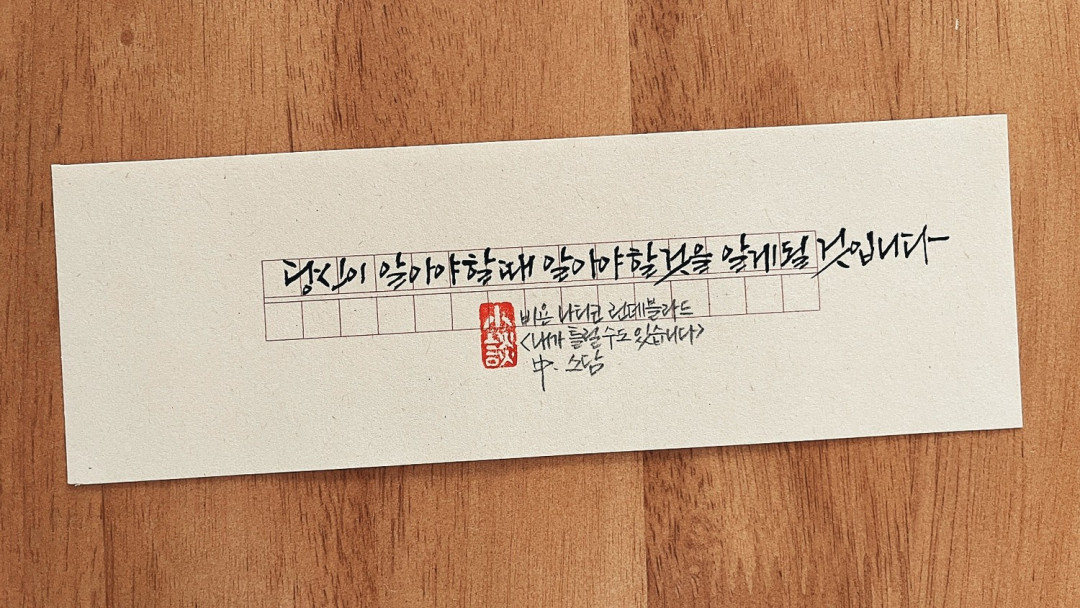 당신이 알아야할때 알아야할것을 알게될 것입니다
小談
비욘 나티코 린데블라드
<내가 틀릴 수도 있습니다>
中. 소담